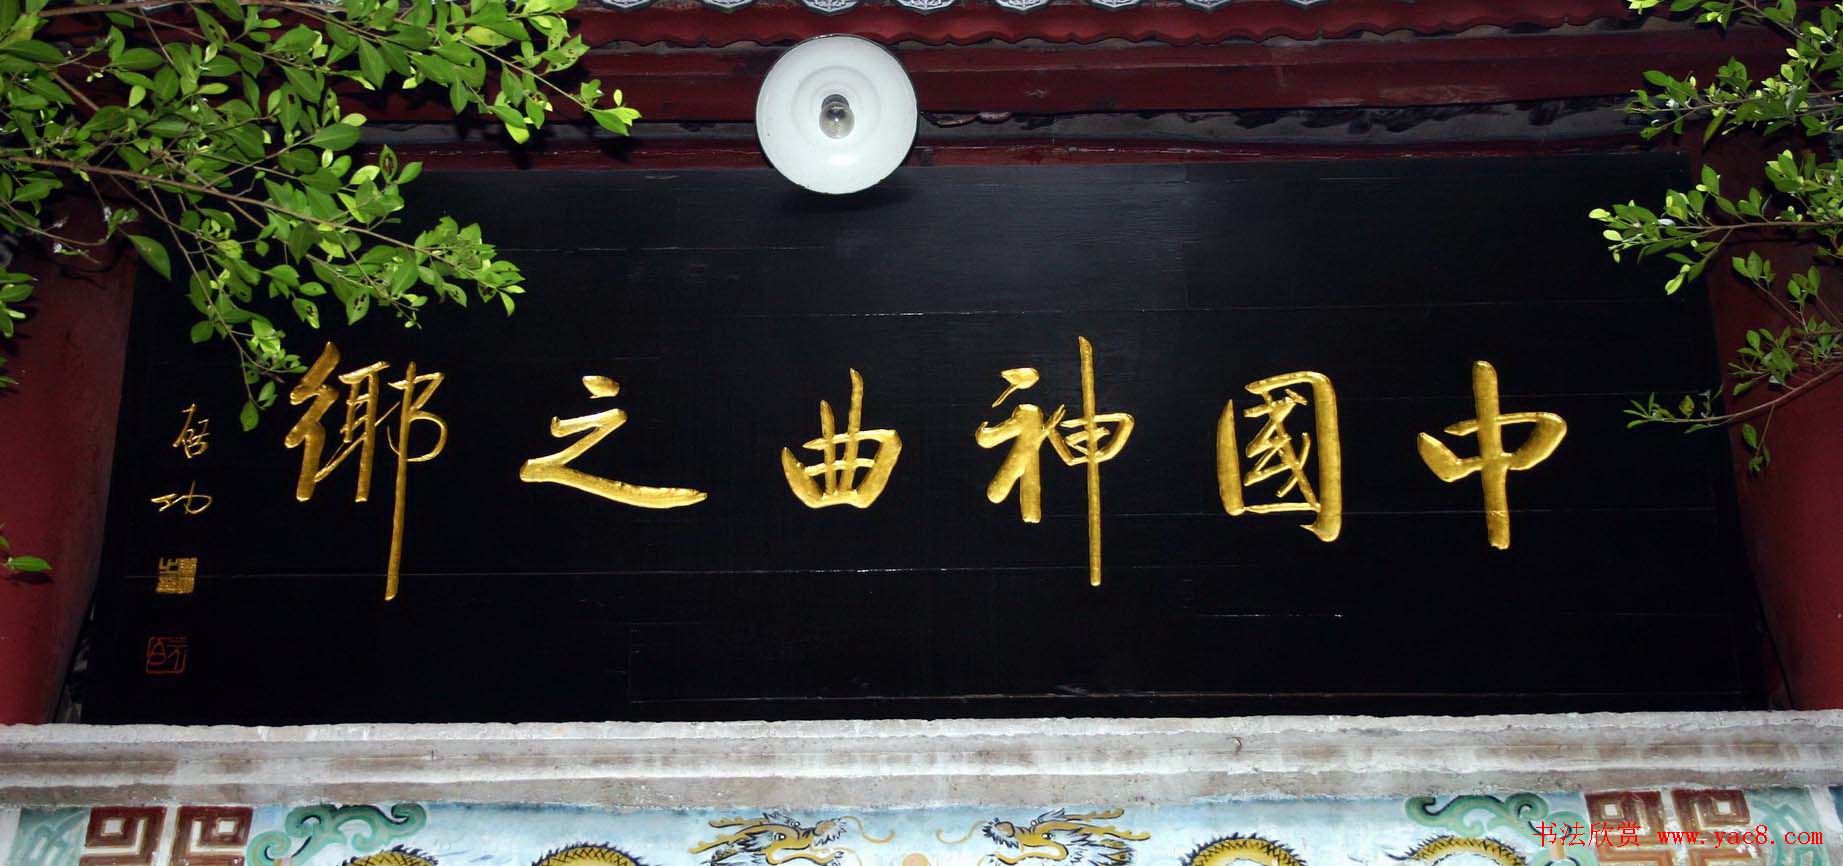 中國神曲之鄉
启功
书法欣赏 www.yac8.com